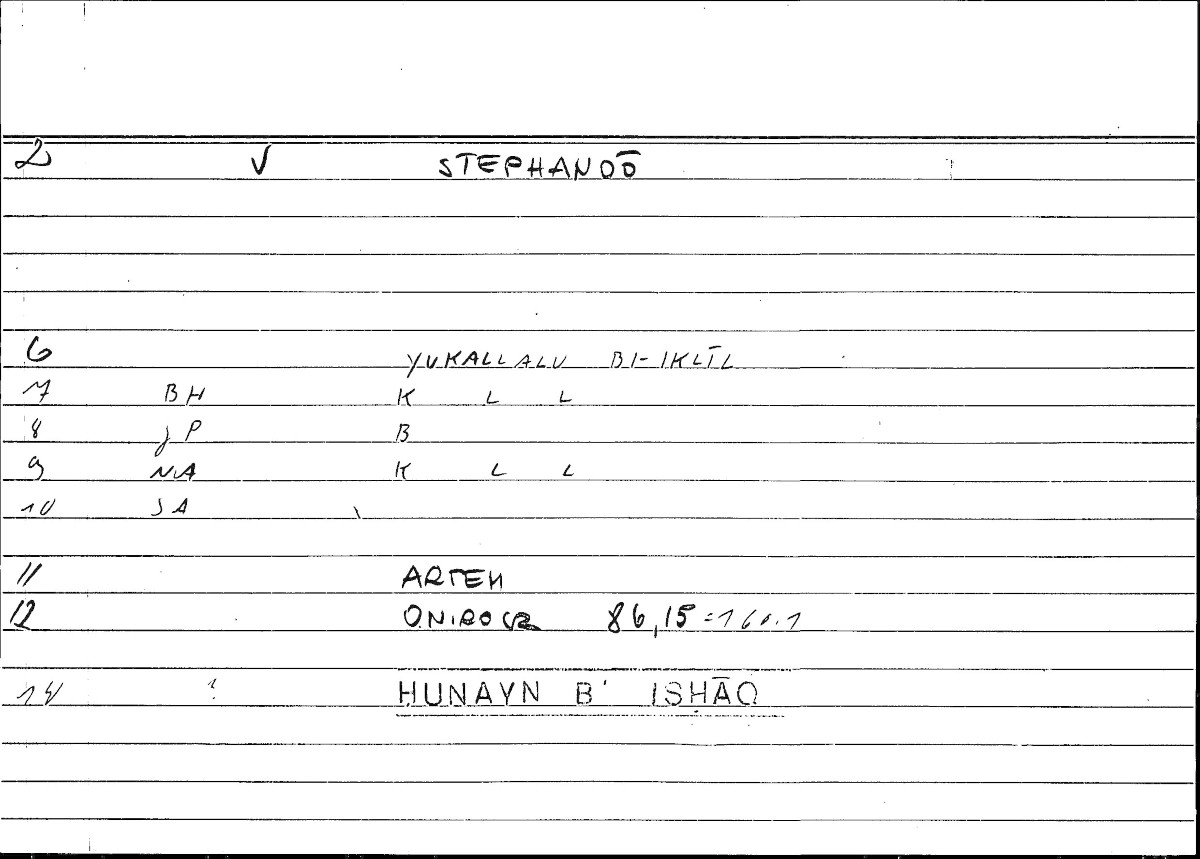 2 V STEPHANOŌ
6 YUKALLALU BI-IKLĪL
7 BH K L L
8 JP B
9 NA K L L
10 SA
11 ARTEM
12 ONIROCR 86,15 = 160.1
14 ḤUNAYN B' ISḤĀQ